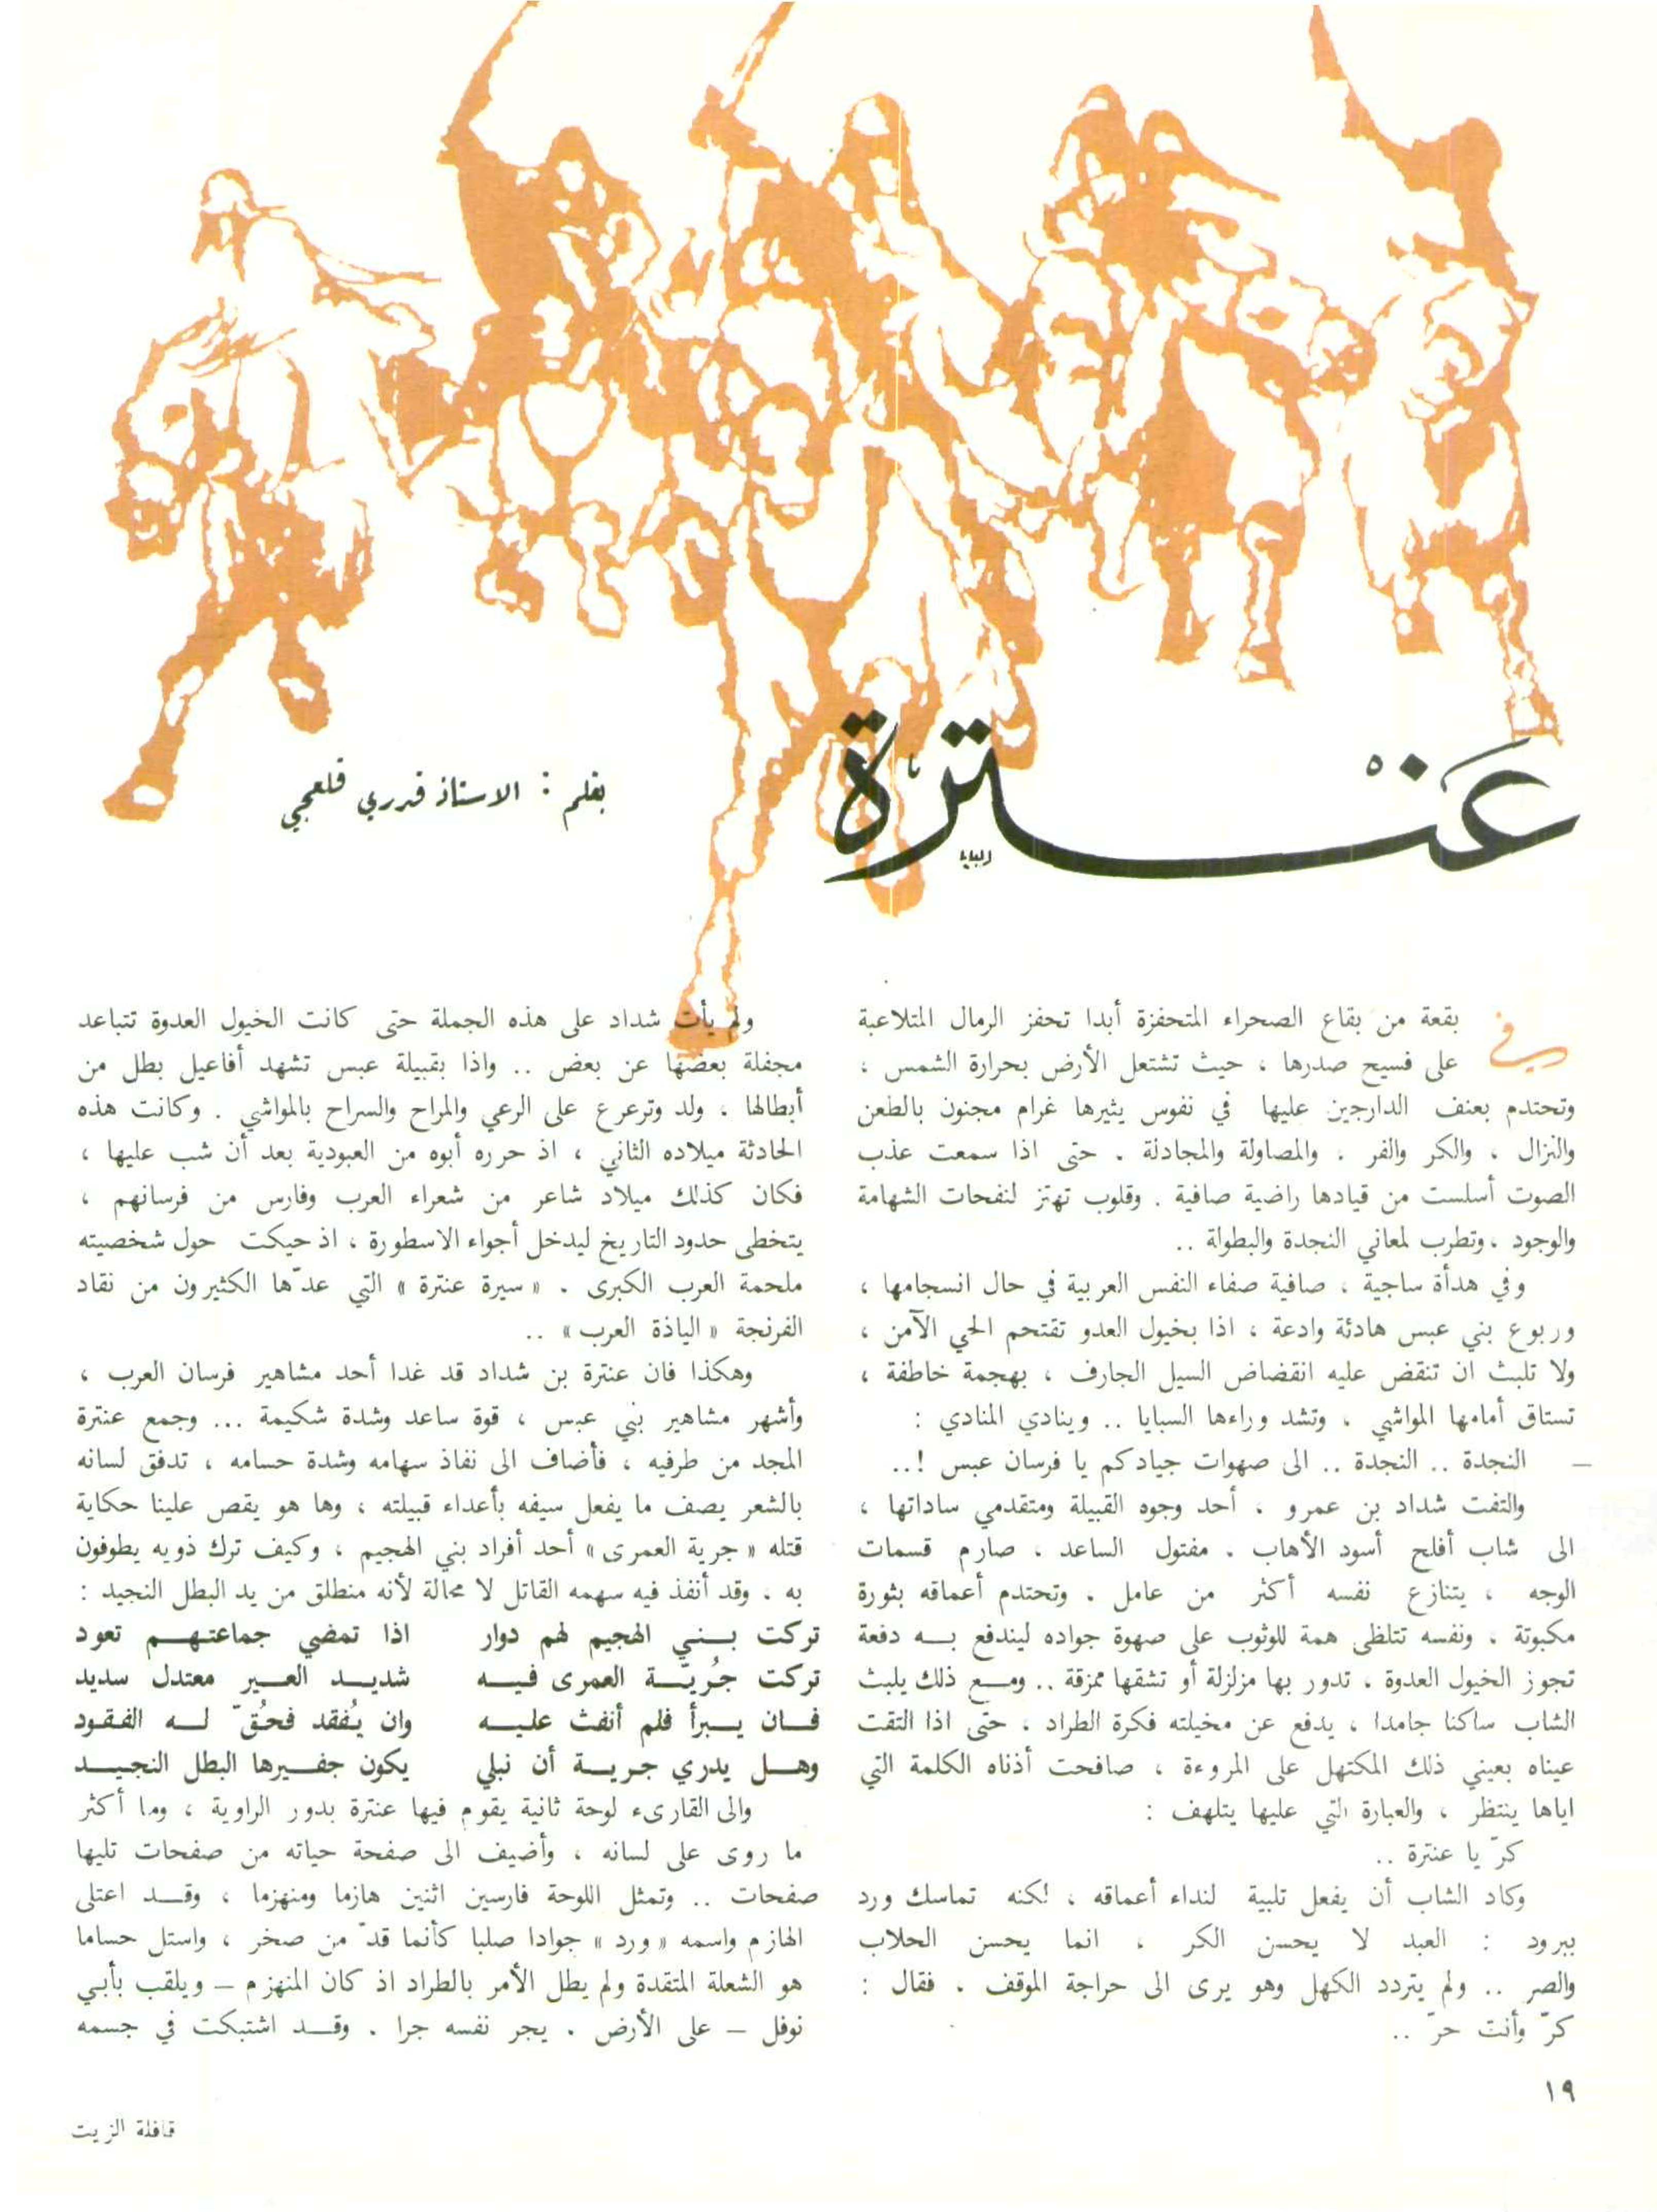 عنترة
بقلم : الاستاذ قدري قلعجي
في بقعة من بقاع الصحراء المتحفزة أبدا تحفز الرمال المتلاعبة
على فسيح صدرها ، حيث تشتعل الأرض بحرارة الشمس ،
وتحتدم بعنف الدارجين عليها في نفوس يثيرها غرام مجنون بالطعن
والنزال ، والكر والفر ، والمصاولة والمجادلة . حتى اذا سمعت عذب
الصوت أسلست من قيادها راضية صافية . وقلوب تهتز لنفحات الشهامة
والوجود ، وتطرب لمعاني النجدة والبطولة ..
وفي هدأة ساجية ، صافية صفاء النفس العربية في حال انسجامها ،
وربوع بني عبس هادئة وادعة ، اذا بخيول العدو تقتحم الحي الآمن ،
ولا تلبث ان تنقض عليه انقضاض السيل الجارف ، بهجمة خاطفة ،
تستاق أمامها المواشي ، وتشد وراءها السبايا .. وينادي المنادي :
— النجدة .. النجدة .. الى صهوات جيادكم يا فرسان عبس !..
والتفت شداد بن عمرو ، أحد وجوه القبيلة ومتقدمي ساداتها ،
الى شاب أفلح أسود الأهاب . مفتول الساعد ، صارم قسمات
الوجه ، يتنازع نفسه أكثر من عامل . وتحتدم أعماقه بثورة
مكبوتة ، ونفسه تتلظى همة للوثوب على صهوة جواده ليندفع به دفعة
تجوز الخيول العدوة ، تدور بها مزلزلة أو تشقها ممزقة .. ومع ذلك يلبث
الشاب ساكنا جامدا ، يدفع عن مخيلته فكرة الطراد ، حتى اذا التقت
عيناه بعيني ذلك المكتهل على المروءة ، صافحت أذناه الكلمة التي
اياها ينتظر ، والعبارة التي عليها يتلهف :
كرّ يا عنترة ..
وكاد الشاب أن يفعل تلبية لنداء أعماقه ، لكنه تماسك ورد
ببرود : العبد لا يحسن الكر ، انما يحسن الحلاب
والصر .. ولم يتردد الكهل وهو يرى الى حراجة الموقف . فقال :
كرّ وأنت حرّ ..
ولم يأت شداد على هذه الجملة حتى كانت الخيول العدوة تتباعد
مجفلة بعضها عن بعض .. واذا بقبيلة عبس تشهد أفاعيل بطل من
أبطالها ، ولد وترعرع على الرعي والمراح والسراح بالمواشي . وكانت هذه
الحادثة ميلاده الثاني ، اذ حرره أبوه من العبودية بعد أن شب عليها ،
فكان كذلك ميلاد شاعر من شعراء العرب وفارس من فرسانهم ،
يتخطى حدود التاريخ ليدخل أجواء الاسطورة ، اذ حيكت حول شخصيته
ملحمة العرب الكبرى . « سيرة عنترة » التي عدّها الكثيرون من نقاد
الفرنجة « الياذة العرب » ..
وهكذا فان عنترة بن شداد قد غدا أحد مشاهير فرسان العرب ،
وأشهر مشاهير بني عبس ، قوة ساعد وشدة شكيمة ... وجمع عنترة
المجد من طرفيه ، فأضاف الى نفاذ سهامه وشدة حسامه ، تدفق لسانه
بالشعر يصف ما يفعل سيفه بأعداء قبيلته ، وها هو يقص علينا حكاية
قتله « جرية العمرى » أحد أفراد بني الهجيم ، وكيف ترك ذويه يطوفون
به ، وقد أنفذ فيه سهمه القاتل لا محالة لأنه منطلق من يد البطل النجيد :
تركت بني الهجيم لهم دوار اذا تمضي جماعتهم تعود
تركت جُريّة العمرى فيه شديد العير معتدل سديد
فان يبرأ فلم أنفث عليه وان يُفقد فحُقّ له الفقود
وهل يدري جرية أن نبلي يكون جفيرها البطل النجيد
والى القارىء لوحة ثانية يقوم فيها عنترة بدور الراوية ، وما أكثر
ما روى على لسانه ، وأضيف الى صفحة حياته من صفحات تليها
صفحات .. وتمثل اللوحة فارسين اثنين هازما ومنهزما ، وقد اعتلى
الهازم واسمه « ورد » جوادا صلبا كأنما قدّ من صخر ، واستل حساما
هو الشعلة المتقدة ولم يطل الأمر بالطراد اذ كان المنهزم — ويلقب بأبي
نوفل — على الأرض . يجر نفسه جرا . وقد اشتبكت في جسمه
١٩
قافلة الزيت